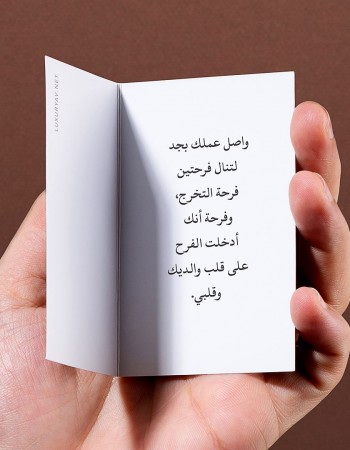 واصل عملك بجد
لتنال فرحتين
فرحة التخرج،
وفرحة أنك
أدخلت الفرح
على قلب والديك
وقلبي.